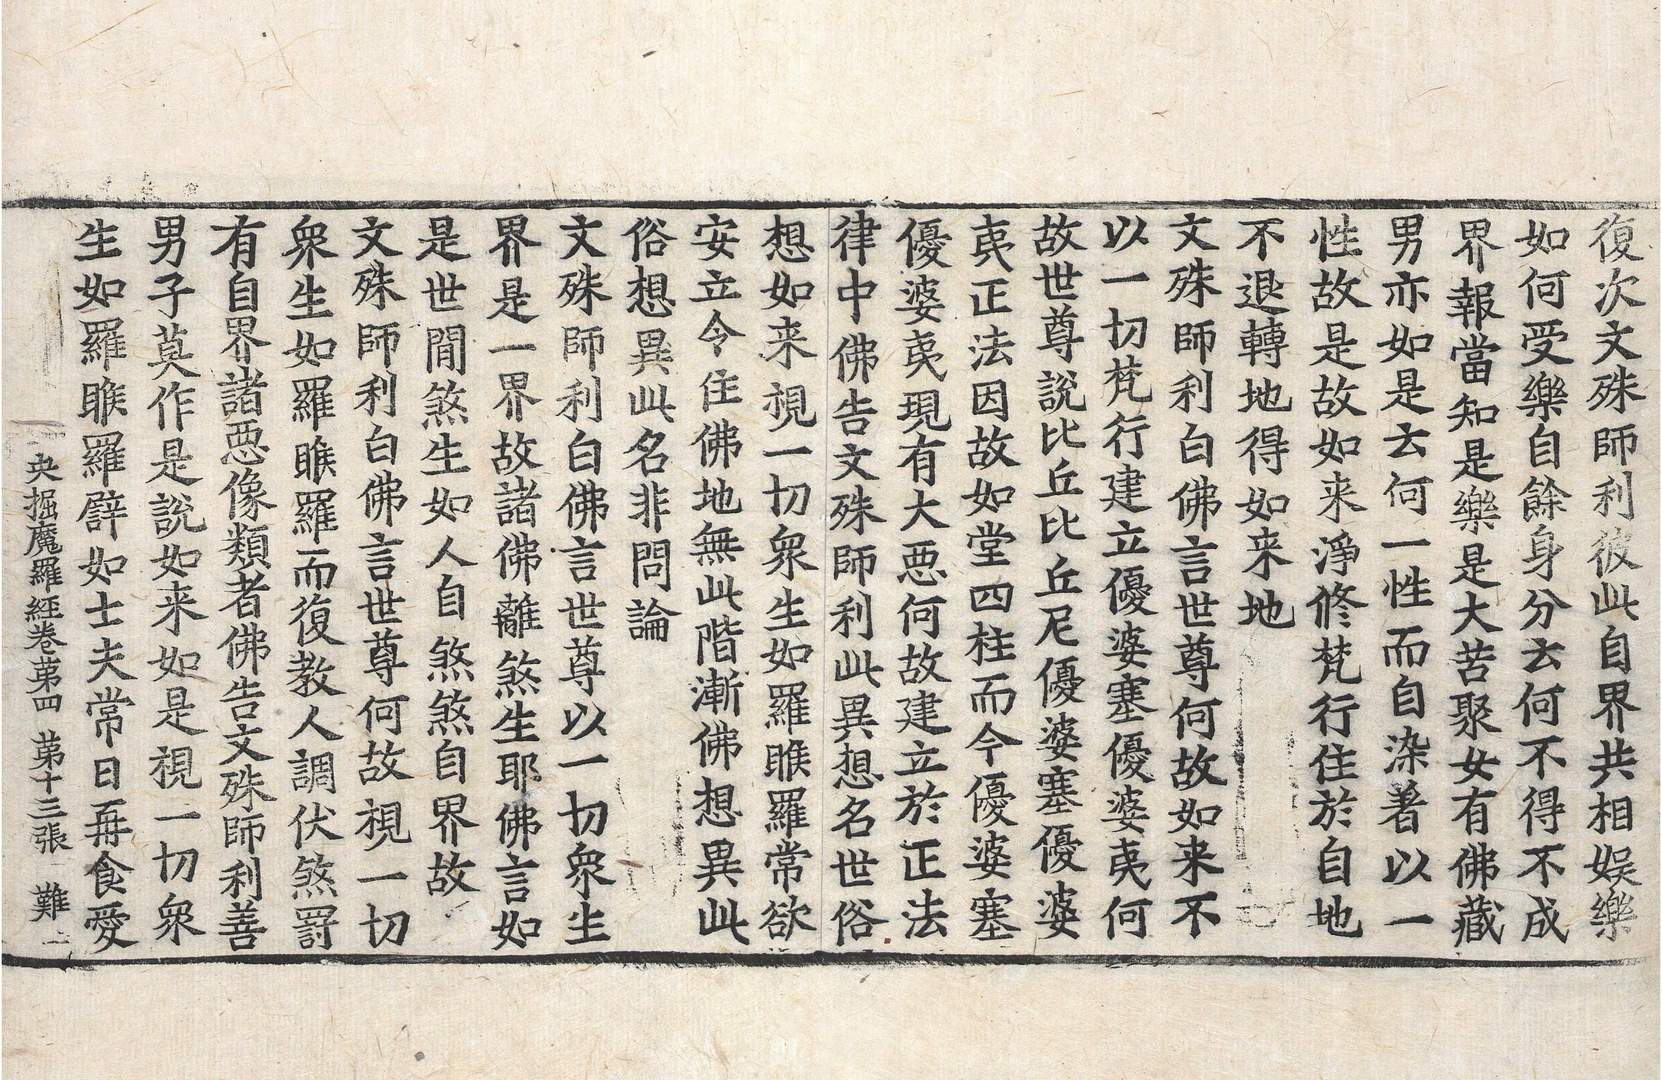 復次文殊師利彼此自界共相娛樂
如何受樂自餘身分云何不得不成
界報當知是樂是大苦聚女有佛藏
男亦如是云何一性而自染著以一
性故是故如来淨修梵行住於自地
不退轉地得如来地
文殊師利白佛言世尊何故如来不
以一切梵行建立優婆塞優婆夷何
故世尊說比丘比丘尼優婆塞優婆
夷正法因故如堂四柱而今優婆塞
優婆夷現有大惡何故建立於正法
律中佛告文殊師利此異想名世俗
想如来視一切衆生如羅睺羅常欲
安立令住佛地無此階漸佛想異此
俗想異此名非問論
文殊師利白佛言世尊以一切衆生
界是一界故諸佛離煞生耶佛言如
是世間煞生如人自煞煞自界故
文殊師利白佛言世尊何故視一切
衆生如羅睺羅而復教人調伏煞罸
有自界諸惡像類者佛告文殊師利善
男子莫作是說如来如是視一切衆
生如羅睺羅譬如士夫常日再食愛
央掘魔羅経卷苐四 苐十三張 難